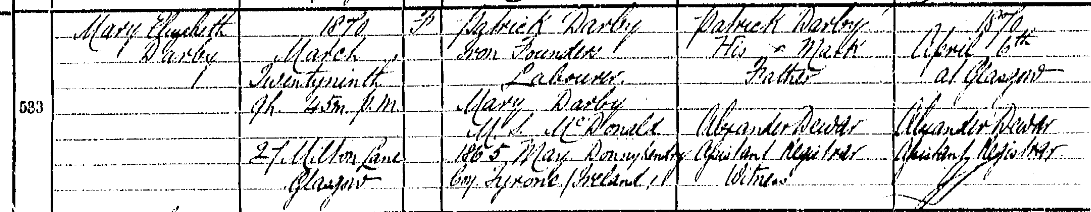 583
Mary Elizabeth
Darby
1870
March
Twentyninth
9h. 45m. p.m.
27 Milton Lane
Glasgow
F
Patrick Darby
Iron Founders
Labourer
Mary Darby
M.S. McDonald
1865 May Donnyhendry
Coy Tyrone, Ireland,
Patrick Darby
His x Mark
Father
Alexander Dewar
Assistant Registrar
Witness
1870
April 6th
at Glasgow
Alexander Dewar
Assistant Registrar